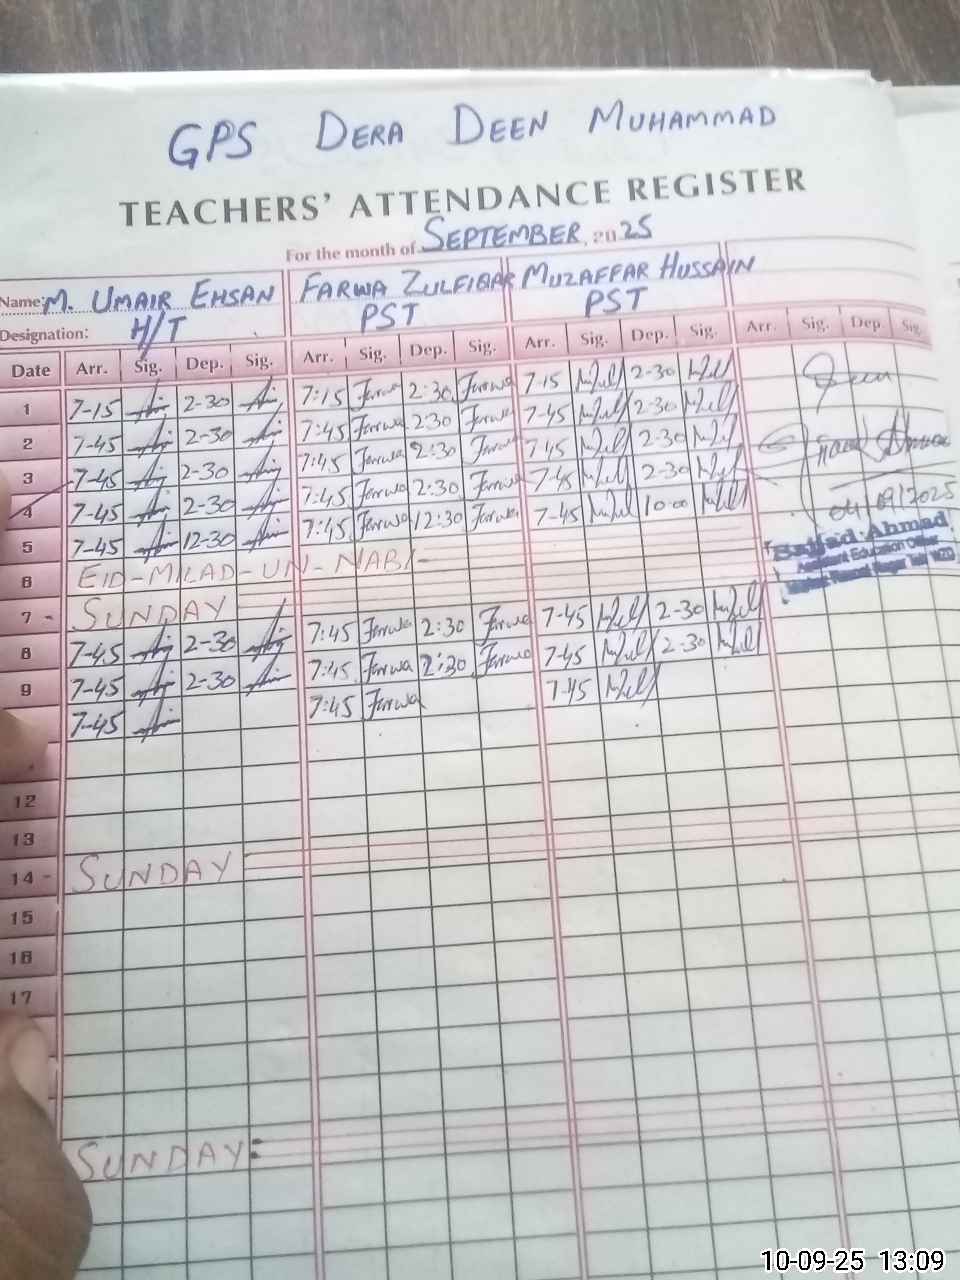 GPS DERA DEEN MUHAMMAD
TEACHERS' ATTENDANCE REGISTER
For the month of SEPTEMBER, 2025
Name: M. UMAIR EHSAN FARWA ZULFIQAR MUZAFFAR HUSSAIN
Designation: H/T PST PST
Date Arr. Sig. Dep. Sig. Arr. Sig. Dep. Sig. Arr. Sig. Dep. Sig. Arr. Sig. Dep. Sig.
1 7-15 2-30 7:15 Farwa 2:30 Farwa 7-15 2-30
2 7-45 2-30 7:45 Farwa 2:30 Farwa 7-45 2-30
3 7-45 2-30 7:45 Farwa 2:30 Farwa 7-45 2-30
4 7-45 2-30 7:45 Farwa 2:30 Farwa 7-45 2-30
04/09/2025
5 7-45 12-30 7:45 Farwa 12:30 Farwa 7-45 10-00
Sajjad Ahmad
Assistant Education Officer
6 EID-MILAD-UN-NABI-
7 - SUNDAY
8 7-45 2-30 7:45 Farwa 2:30 Farwa 7-45 2-30
9 7-45 2-30 7:45 Farwa 2:30 Farwa 7-45 2-30
7-45 7:45 Farwa 7-45
12
13
14 - SUNDAY
15
16
17
SUNDAY:
10-09-25 13:09